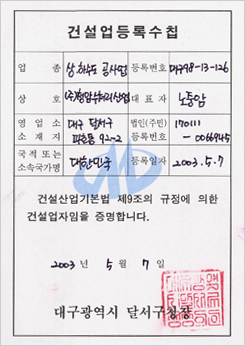 건설업등록수첩
업 종 상·하수도 공사업 등록번호 대구98-13-126
상 호 대표자 노종암
영업소 소재지 대구 달서구 92-2 법인(주민) 등록번호 170111 - 0066945
국적 또는 소속국가명 대한민국 등록일자 2003.5.7
건설산업기본법 제9조의 규정에 의한
건설업자임을 증명합니다.
2003 년 5 월 7 일
대구광역시 달서구청장